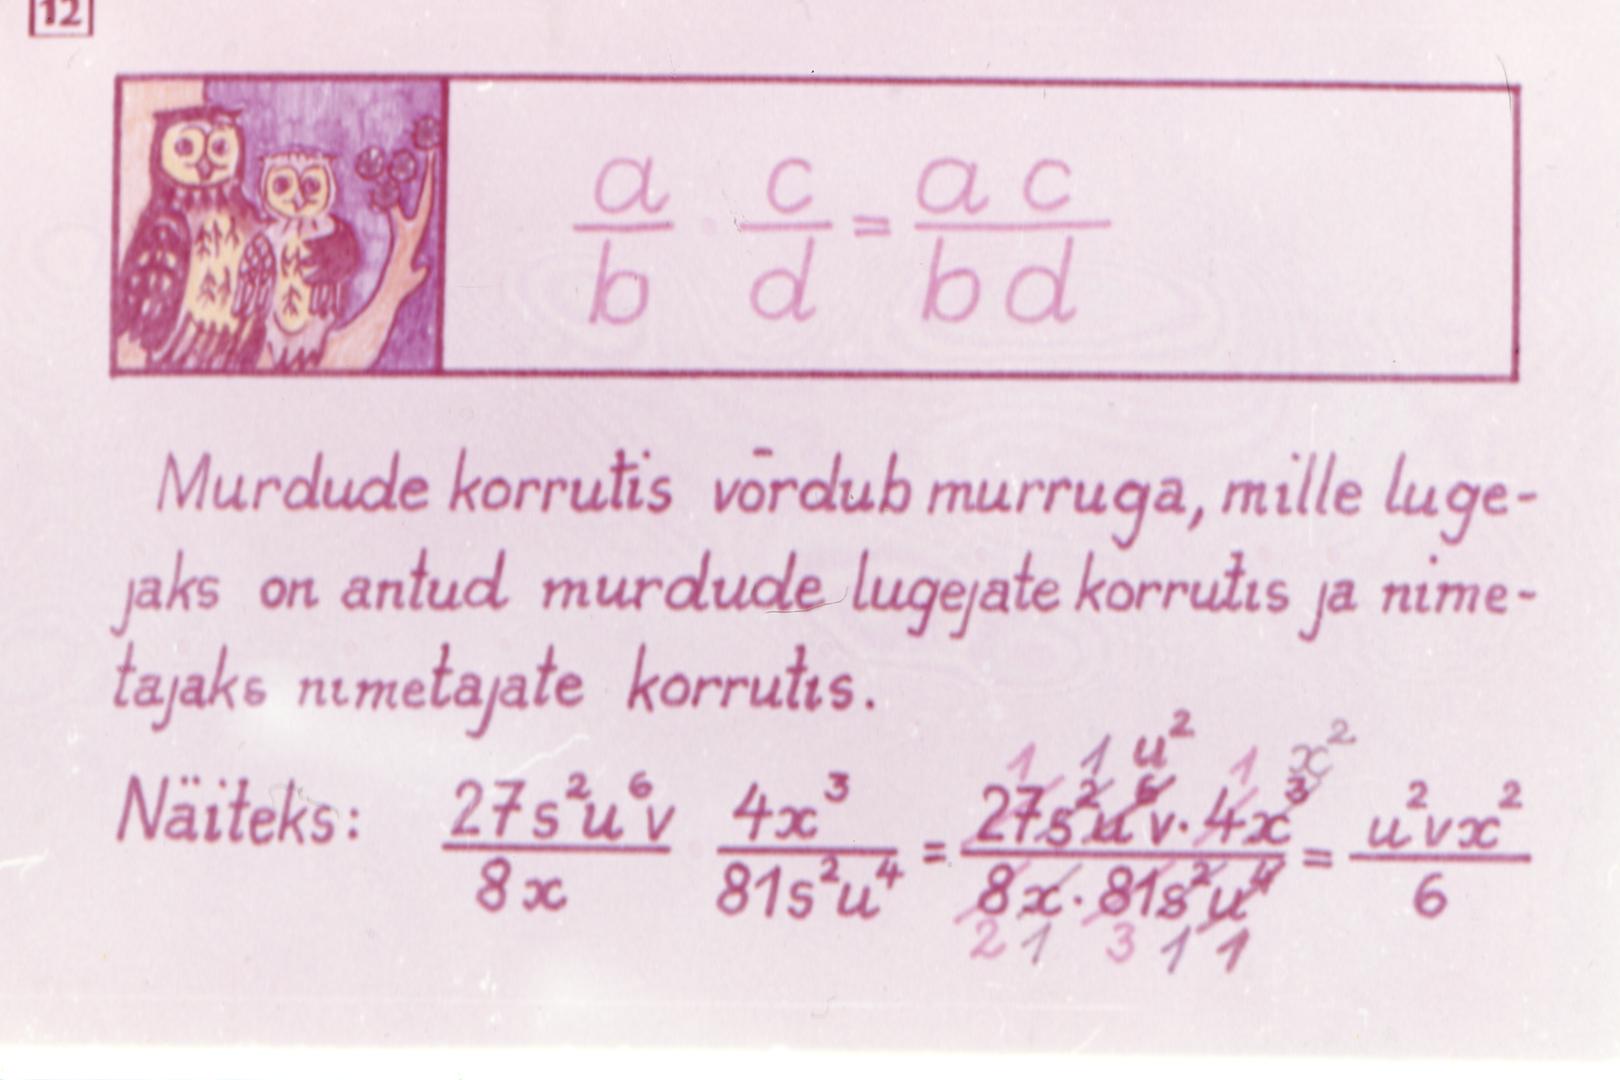 12
a/b · c/d = a c/b d
Murdude korrutis võrdub murruga, mille luge-
jaks on antud murdude lugejate korrutis ja nime-
tajaks nimetajate korrutis.
1 1 u² 1 x²
Näiteks: 27s²u⁶v/8x 4x³/81s²u⁴ = 27s²u⁶v·4x³/8x·81s²u⁴ = u²vx²/6
2 1 3 1 1